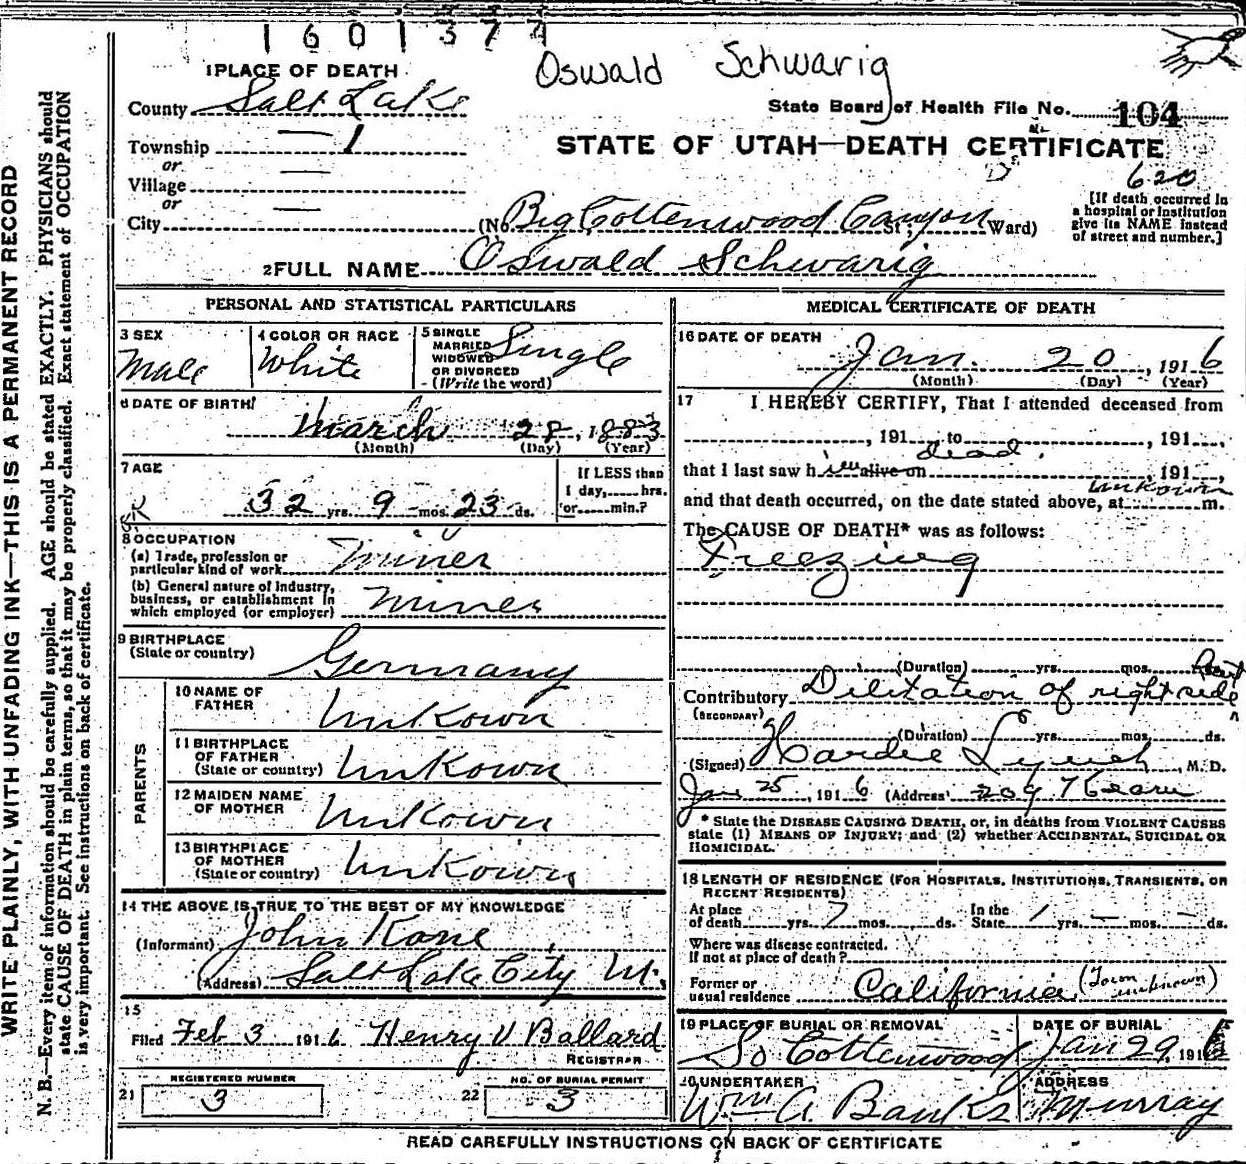 1601377
Oswald Schwarig
1 PLACE OF DEATH
County Salt Lake
State Board of Health File No. 104
Township — 1
or
Village —
or
City —
STATE OF UTAH—DEATH CERTIFICATE
620
(No. Big Cottenwood Canyon St.; Ward)
[If death occurred in
a hospital or institution
give its NAME instead
of street and number.]
2 FULL NAME Oswald Schwarig
PERSONAL AND STATISTICAL PARTICULARS
3 SEX
Male
4 COLOR OR RACE
White
5 SINGLE
MARRIED
WIDOWED
OR DIVORCED
(Write the word)
Single
6 DATE OF BIRTH
March 28, 1883
(Month) (Day) (Year)
7 AGE
32 yrs. 9 mos. 23 ds.
If LESS than
1 day, hrs.
or min.?
8 OCCUPATION
(a) Trade, profession or
particular kind of work Miner
(b) General nature of industry,
business, or establishment in
which employed (or employer) Miner
9 BIRTHPLACE
(State or country) Germany
PARENTS
10 NAME OF
FATHER Unkown
11 BIRTHPLACE
OF FATHER
(State or country) Unkown
12 MAIDEN NAME
OF MOTHER Unkown
13 BIRTHPLACE
OF MOTHER
(State or country) Unkown
14 THE ABOVE IS TRUE TO THE BEST OF MY KNOWLEDGE
(Informant) John Kane
(Address) Salt Lake City Ut.
15
Filed Feb 3 1916 Henry V Ballard
REGISTRAR
REGISTERED NUMBER
21 3
NO. OF BURIAL PERMIT
22 3
MEDICAL CERTIFICATE OF DEATH
16 DATE OF DEATH
Jan. 20, 1916
(Month) (Day) (Year)
17 I HEREBY CERTIFY, That I attended deceased from
, 191 to , 191 ,
dead.
that I last saw him alive on , 191 ,
unkown
and that death occurred, on the date stated above, at m.
The CAUSE OF DEATH* was as follows:
Freezing
(Duration) yrs. mos.
Contributory Dilitation of right side
(SECONDARY)
(Duration) yrs. mos. ds.
(Signed) Hardie Lynch, M. D.
Jan 25, 1916 (Address) 209 Kearn
* State the DISEASE CAUSING DEATH, or, in deaths from VIOLENT CAUSES
state (1) MEANS OF INJURY; and (2) whether ACCIDENTAL, SUICIDAL OR
HOMICIDAL.
18 LENGTH OF RESIDENCE (FOR HOSPITALS, INSTITUTIONS, TRANSIENTS, OR
RECENT RESIDENTS)
At place
of death yrs. 7 mos. ds.
In the
State 1 yrs. — mos. — ds.
Where was disease contracted.
If not at place of death?
Former or
usual residence California (Town unknown)
19 PLACE OF BURIAL OR REMOVAL
So Cottenwood
DATE OF BURIAL
Jan 29, 1916
20 UNDERTAKER
Wm A. Banks
ADDRESS
Murray
READ CAREFULLY INSTRUCTIONS ON BACK OF CERTIFICATE
WRITE PLAINLY, WITH UNFADING INK—THIS IS A PERMANENT RECORD
N. B.—Every item of information should be carefully supplied. AGE should be stated EXACTLY. PHYSICIANS should
state CAUSE OF DEATH in plain terms, so that it may be properly classified. Exact statement of OCCUPATION
is very important. See instructions on back of certificate.